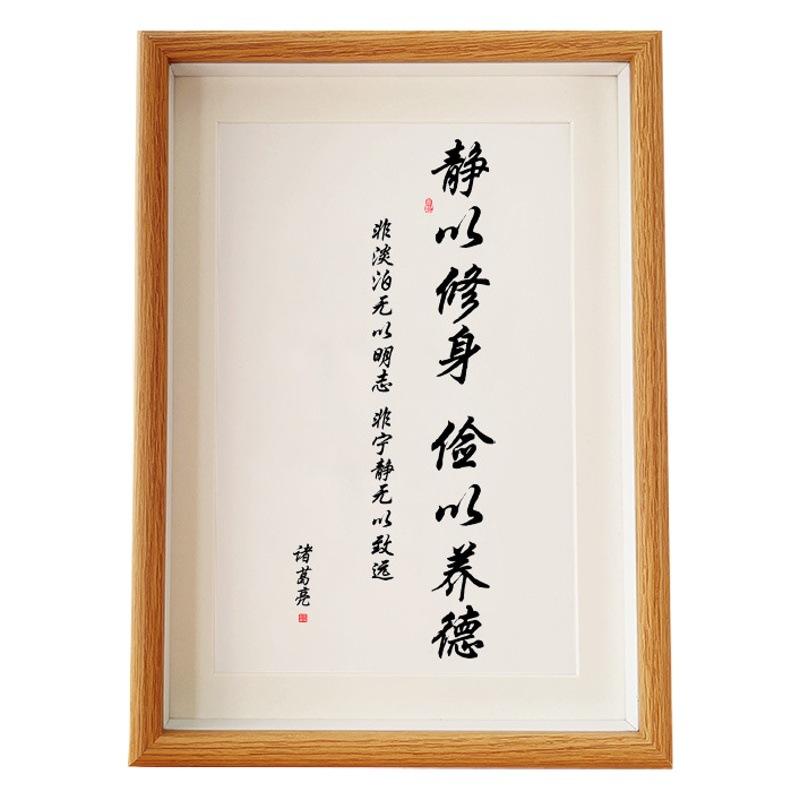 静以修身 俭以养德
非淡泊无以明志 非宁静无以致远
诸葛亮